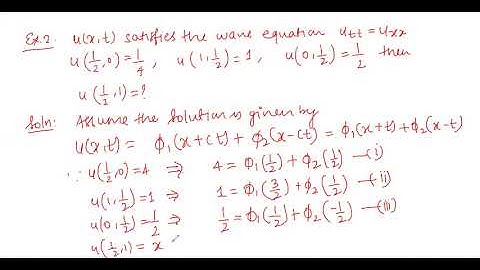 Ex.2. u(x,t) satisfies the wave equation u_tt = u_xx
u(1/2,0) = 1/4, u(1,1/2) = 1, u(0,1/2) = 1/2 then
u(1/2,1) = ?
Soln: Assume the solution is given by
u(x,t) = ϕ₁(x+ct) + ϕ₂(x-ct) = ϕ₁(x+t) + ϕ₂(x-t)
∵ u(1/2,0) = 4 ⇒ 4 = ϕ₁(1/2) + ϕ₂(1/2) —(i)
u(1,1/2) = 1 ⇒ 1 = ϕ₁(3/2) + ϕ₂(1/2) —(ii)
u(0,1/2) = 1/2 ⇒ 1/2 = ϕ₁(1/2) + ϕ₂(-1/2) —(iii)
u(1/2,1) = x